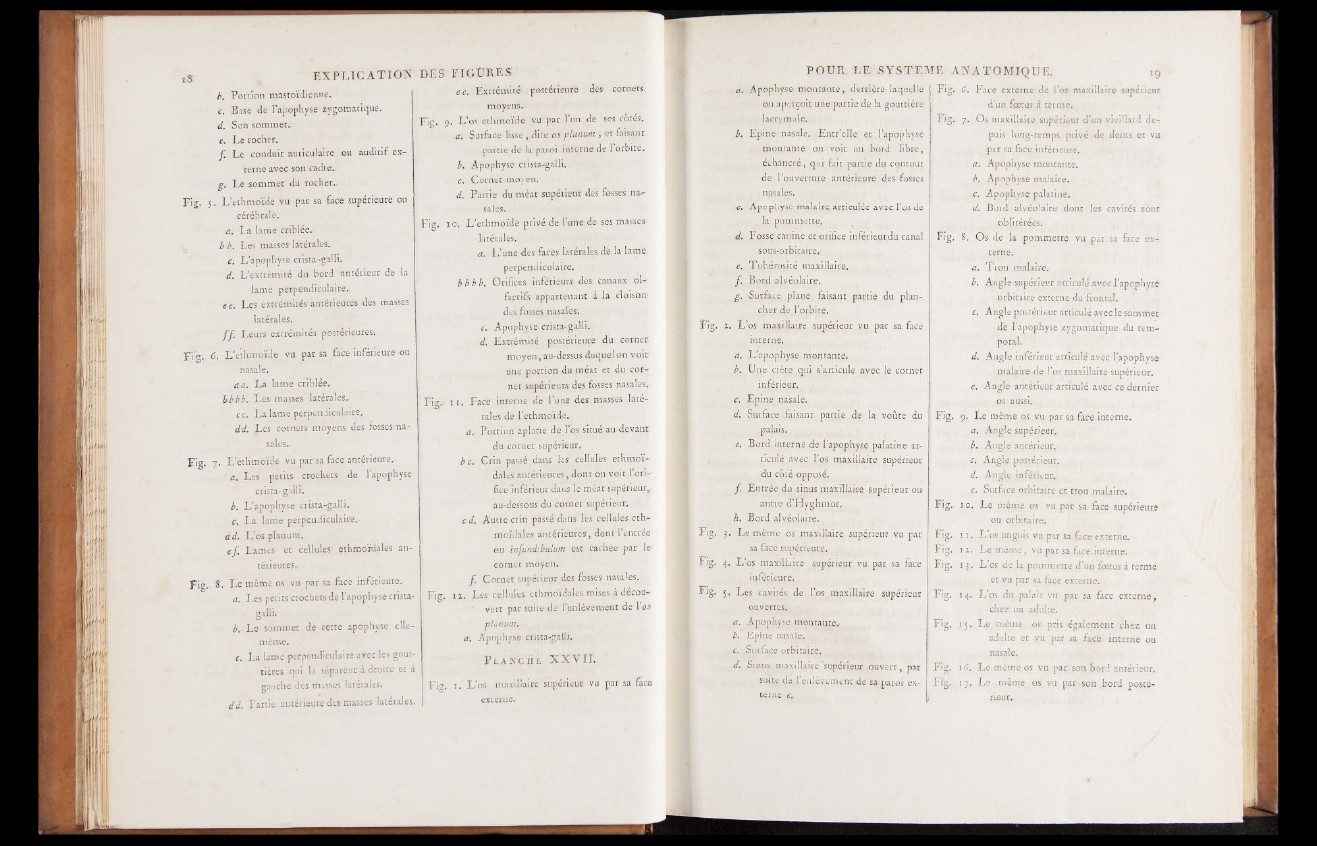 18 EXPLICATION DES FIGURES
b. Portion mastoïdienne.
c. Base de l'apophyse zygomatique.
d. Son sommet.
e. Le rocher.
f. Le conduit auriculaire ou auditif ex-
terne avec son cadre.
g. Le sommet du rocher.
Fig. 5. L'ethmoïde vu par sa face supérieure ou
cérébrale.
a. La lame criblée.
b b. Les masses latérales.
c. L'apophyse crista-galli.
d. L'extrémité du bord antérieur de la
lame perpendiculaire.
e e. Les extrémités antérieures des masses
latérales.
ff. Leurs extrémités postérieures.
Fig. 6. L'ethmoïde vu par sa face inférieure ou
nasale.
a a. La lame criblée.
b b b b. Les masses latérales.
c c. La lame perpendiculaire.
d d. Les cornets moyens des fosses na-
sales.
Fig. 7. L'ethmoïde vu par sa face antérieure.
a. Les petits crochets de l'apophyse
crista-galli.
b. L'apophyse crista-galli.
c. La lame perpendiculaire.
a d. L'os planum.
e f. Lames et cellules ethmoïdales an-
térieures.
Fig. 8. Le même os vu par sa face inférieure.
a. Les petits crochets de l'apophyse crista-
galli.
b. Le sommet de cette apophyse elle-
même.
c. La lame perpendiculaire avec les gout-
tières qui la séparent à droite et à
gauche des masses latérales.
d d. Partie antérieure des masses latérales.
e e. Extrémité postérieure des cornets
moyens.
Fig. 9. L'os ethmoïde vu par l'un de ses côtés.
a. Surface lisse, dite os planum, os faisant
partie de la paroi interne de l'orbite.
b. Apophyse crista-galli.
c. Cornet moyen.
d. Partie du méat supérieur des fosses na-
sales.
Fig. 10. L'ethmoïde privé de l'une de ses masses
latérales.
a. L'une des faces latérales de la lame
perpendiculaire.
b b b b. Orifices inférieurs des canaux ol-
factifs appartenant à la cloison
des fosses nasales.
c. Apophyse crista-galli.
d. Extrémité postérieure du cornet
moyen, au-dessus duquel on voit
une portion du méat et du cor-
net supérieurs des fosses nasales.
Fig. 11. Face interne de l'une des masses laté-
rales de l'ethmoïde.
a. Portion aplatie de l'os situé au-devant
du cornet supérieur.
b c. Crin passé dans les cellules ethmoï-
dales antérieures, dont on voit l'ori-
fice inférieur dans le méat supérieur,
au-dessous du cornet supérieur.
c d. Autre crin passé dans les cellules eth-
moïdales antérieures, dont l'entrée
ou infundibulum est cachée par le
cornet moyen.
f. Cornet supérieur des fosses nasales.
Fig. 12. Les cellules ethmoïdales mises à décou-
vert par suite de l'enlèvement de l'os
planum.
a. Apophyse crista-galli.
PLANCHE XXVII.
Fig. 1. L'os maxillaire supérieur vu par sa face
externe.
POUR LE SYSTEME ANATOMIQUE. 19
a. Apophyse montante, derrière laquelle
on aperçoit une partie de la gouttière
lacrymale.
b. Epine nasale. Entr'elle et l'apophyse
montante on voit un bord libre,
échancré, qui fait partie du contour
de l'ouverture antérieure des fosses
nasales.
c. Apophyse malaire articulée avec l'os de
la pommette.
d. Fosse canine et orifice inférieur du canal
sous-orbitaire.
e. Tubérosité maxillaire.
f. Bord alvéolaire.
g. Surface plane faisant partie du plan-
cher de l'orbite.
Fig. 2. L'os maxillaire supérieur vu par sa face
interne.
a. L'apophyse montante.
b. Une crête qui s'articule avec le cornet
inférieur.
c. Epine nasale.
d. Surface faisant partie de la voûte du
palais.
e. Bord interne de l'apophyse palatine ar-
ticulé avec l'os maxillaire supérieur
du côté opposé.
f. Entrée du sinus maxillaire supérieur ou
antre d'Hyghmor.
h. Bord alvéolaire.
Fig. 3. Le même os maxillaire supérieur vu par
sa face supérieure.
Fig. 4. L'os maxillaire supérieur vu par sa face
inférieure.
Fig. 5. Les cavités de l'os maxillaire supérieur
ouvertes.
a. Apophyse montante.
b. Epine nasale.
c. Surface orbitaire.
d. Sinus maxillaire supérieur ouvert, par
suite de l'enlèvement de sa paroi ex-
terne e.
Fig. 6. Face externe de l'os maxillaire supérieur
d'un fœtus à terme.
Fig. 7. Os maxillaire supérieur d'un vieillard de-
puis long-temps privé de dents et vu
par sa face inférieure.
a. Apophyse montante.
b. Apophyse malaire.
c. Apophyse palatine.
d. Bord alvéolaire dont les cavités sont
oblitérées.
Fig. 8. Os de la pommette vu par sa face ex-
terne.
a. Trou malaire.
b. Angle supérieur articulé avec l'apophyse
orbitaire externe du frontal.
c. Angle postérieur articulé avec le sommet
de l'apophyse zygomatique du tem-
poral.
d. Angle inférieur articulé avec l'apophyse
malaire de l'os maxillaire supérieur.
e. Angle antérieur articulé avec ce dernier
os aussi.
Fig. 9. Le même os vu par sa face interne.
a. Angle supérieur.
b. Angle antérieur.
c. Angle postérieur.
d. Angle inférieur.
e. Surface orbitaire et trou malaire.
Fig. 10. Le même os vu par sa face supérieure
ou orbitaire.
Fig. 11. L'os unguis vu par sa face externe.
Fig. 12. Le même, vu par sa face interne.
Fig. 13. L'os de la pommette d'un fœtus à terme
et vu par sa face externe.
Fig. 14. L'os du palais vu par sa face externe,
chez un adulte.
Fig. 15. Le même os pris également chez un
adulte et vu par sa face interne ou
nasale.
Fig. 16. Le même os vu par son bord antérieur.
Fig. 17. Le même os vu par son bord posté-
rieur.